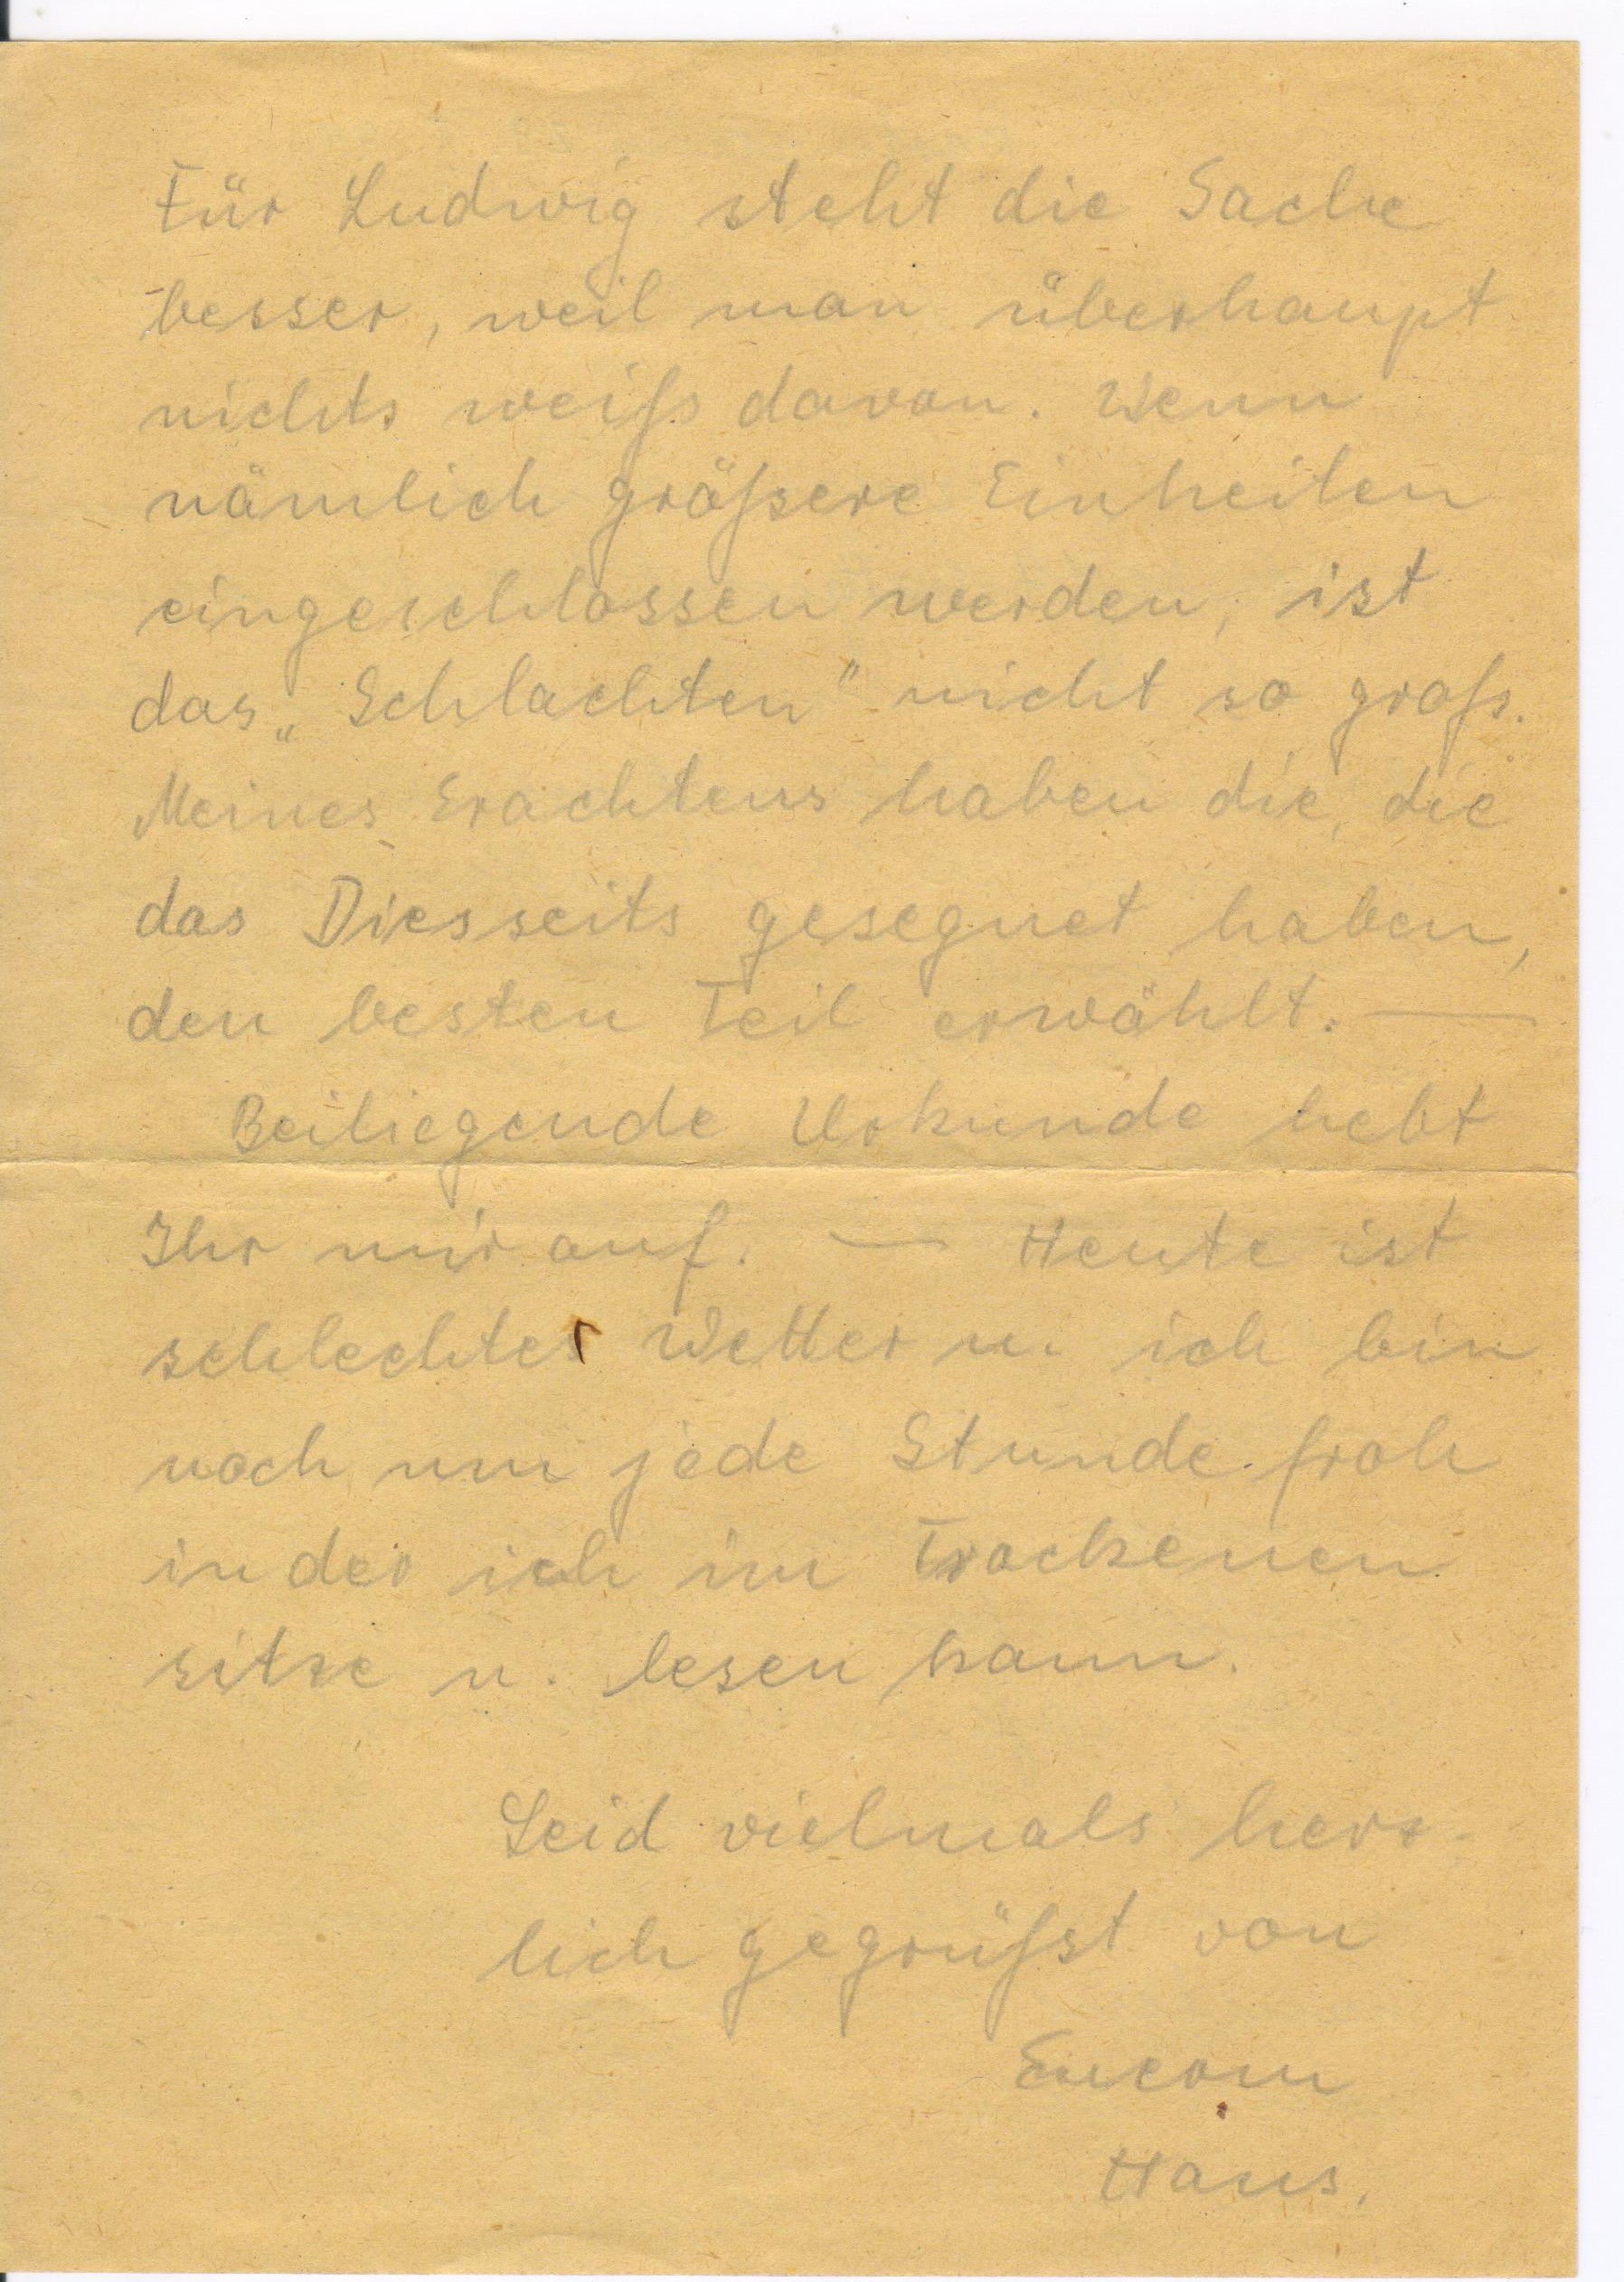 Für Ludwig steht die Sache
besser, weil man überhaupt
nichts weiß davon. Wenn
nämlich größere Einheiten
eingeschlossen werden, ist
das „Schlachten" nicht so groß.
Meines Erachtens haben die, die
das Diesseits gesegnet haben,
den besten Teil erwählt. —
Beiliegende Urkunde hebt
Ihr mir auf. — Heute ist
schlechtes Wetter u. ich bin
noch um jede Stunde froh
in der ich im Trockenen
sitze u. lesen kann.
Seid vielmals herz-
lich gegrüßt von
Eucrm
Hans.